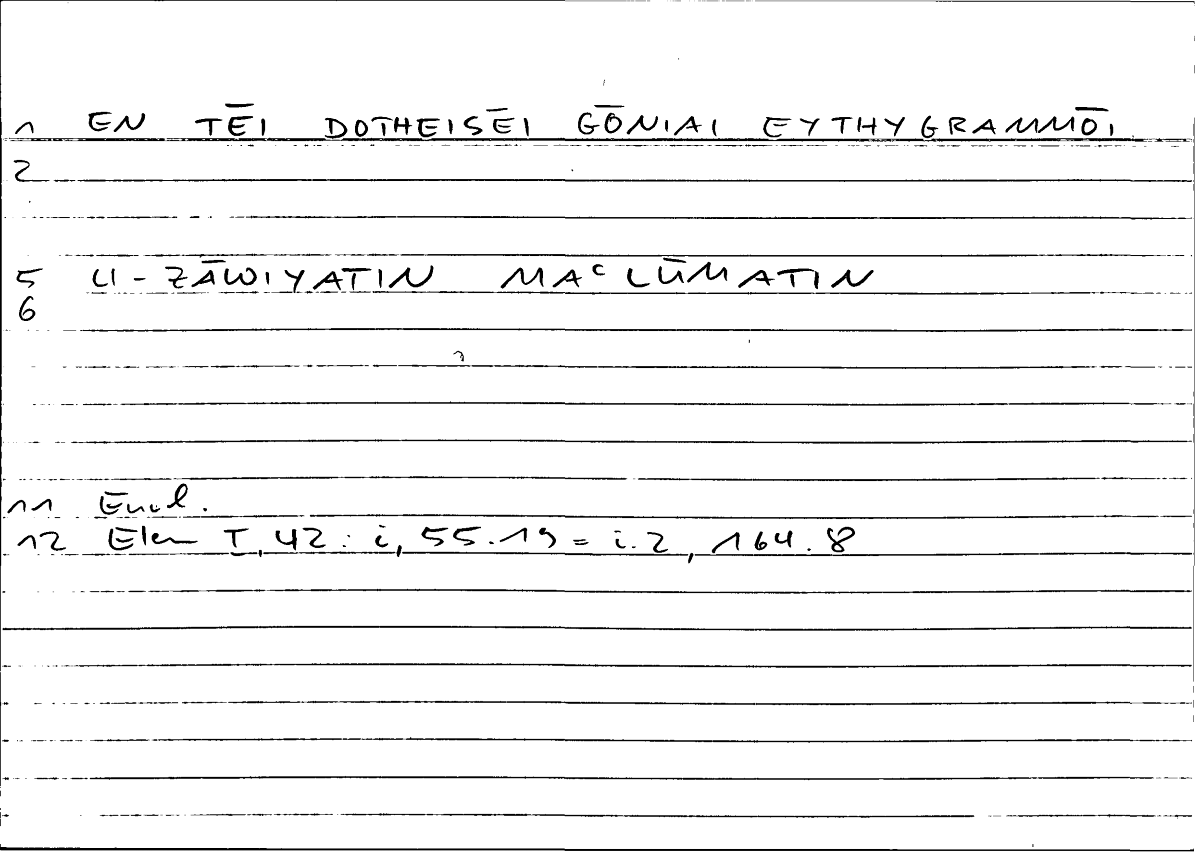 1 EN TĒI DOTHEISĒI GŌNIAI EYTHYGRAMMŌI
2
5 LI-ZĀWIYATIN MAᶜLŪMATIN
6
11 Eucl.
12 Elem I, 42 : i, 55.19 = i.2, 164.8